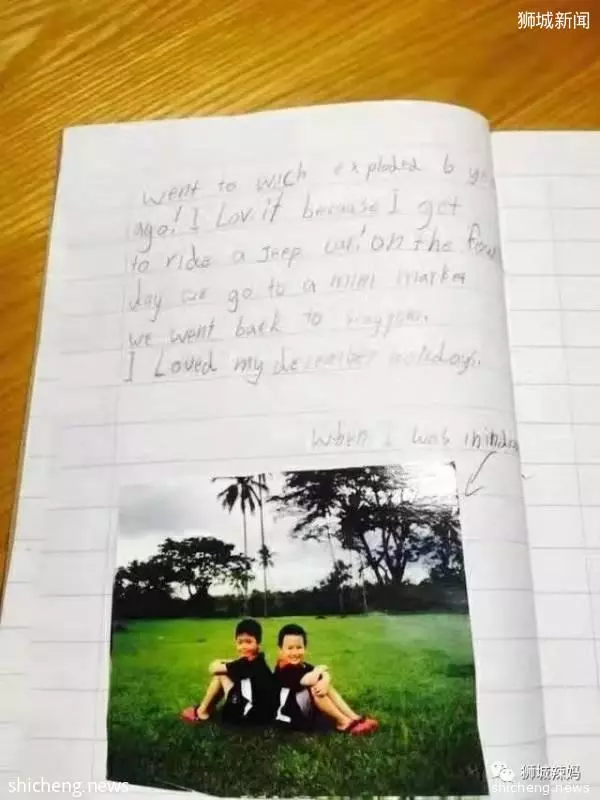 狮城新闻
went to wich exploded 6
ago! I Lov it because I get
to ride a Jeep car! on the
day we go to a mini market
we went back to
I Loved my december holidays.
when I was in
shicheng.news
狮城辣妈
shicheng.news